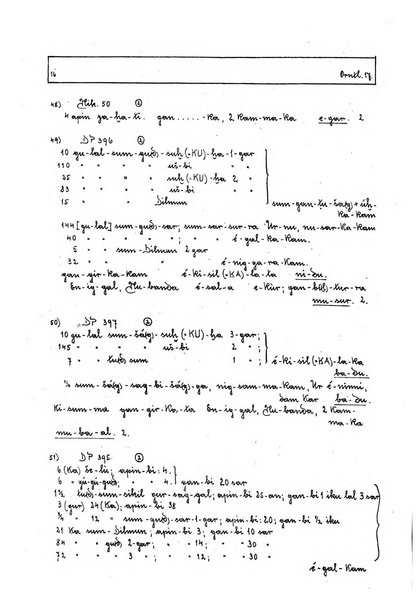 16 Orntl. 17.
48) Nik. 50 ②
4 apin ga-ha-ti. gan ......-ka, 2 Kam-ma-ka e-gar. 2
49) DP 396 ②
10 gu-lal-sum-gud-suh (•KU)-ha-1-gar
110 " " " uš-bi
25 " " " suh (•KU)-ha 2 "
83 " " " uš-bi
15 " " Dilmun
sum-gan-tu-šà(g)+úh-
ka-kam
144 [gu-lal] sum-gud-sar; sum-sar-sur-ra Ur-nu, nu-sar-ka-kam
40 " " " " ; " " é-gal-ka-kam.
5 " sum-Dilmun 2 gar
32 " " " é-nig-ga-ra-kam.
gan-gir-ka-kam é-ki-sil (•KA)-la-la ni-du.
En-ig-gal, Nu-banda é-sal-a e-kur; gan- -tur-ra
mu-sur. 2.
50) DP 397 ②
10 gu-lal sum-šà(g)-suh (•KU)-ha 3-gar;
145 " " " uš-bi 2 " ;
7 " " sum 1 " ;
é-ki-sil (•KA)-la-ka
ba-du.
¼ sum-šà(g)-sag-bi-šà(g)-ga, nig-sam-ma-kam, Ur é-ninni,
dam kar ba-du.
ki-sum-ma gan-gir-ka-ta En-ig-gal, Nu-banda, 2 Kam-
ma-ka
mu-ba-al. 2.
51) DP 395 ③
6 (Ka) še-lu; apin-bi: 4.
6 " gú-gú-gud; " : 4. gan-bi 20 sar
1½ sum-sikil gur-sag-gal; apin-bi 25-an; gan-bi 1 iku lal 3 sar
3 (gur) 24 (Ka); apin-bi 38
¾ " 12 " sum-gud-sar-1-gar; apin-bi: 20; gan-bi ½ iku
21 Ka sum-Dilmun; apin-bi 3; gan-bi 10 sar
84 " " gud 2-gar; " : 14; " " 30 "
72 " " " 3 " ; " : 12; " " 30 "
é-gal-Kam